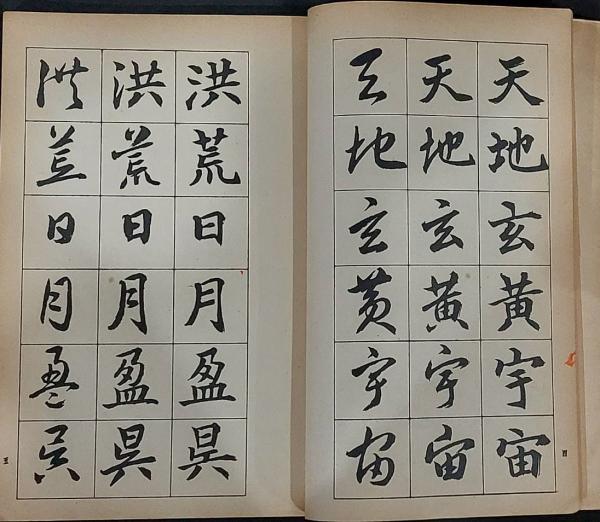 天地玄黃宇宙
天地玄黃宇宙
天地玄黃宇宙
四
洪荒日月盈昃
洪荒日月盈昃
洪荒日月盈昃
五